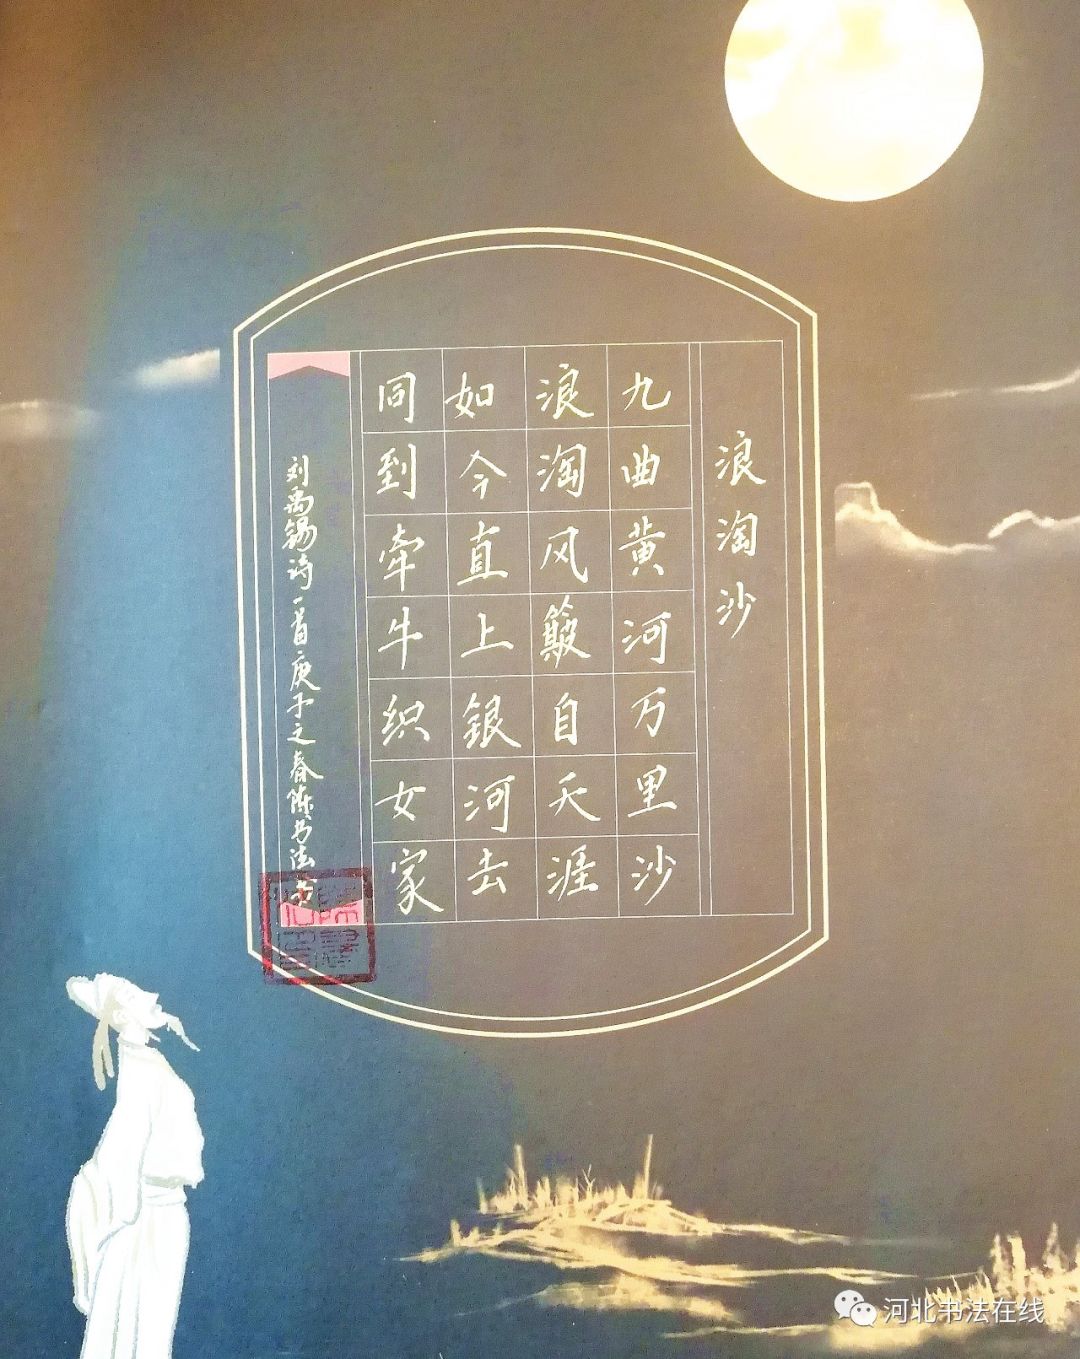 浪淘沙
九曲黄河万里沙
浪淘风簸自天涯
如今直上银河去
同到牵牛织女家
刘禹锡诗一首庚子之春陈书法书
河北书法在线